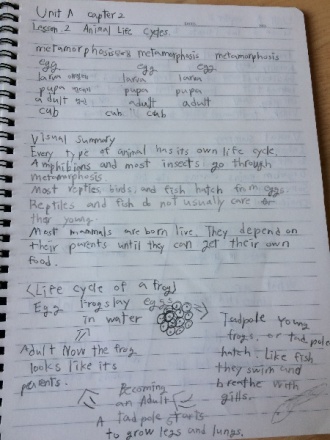 Unit A capter 2
Lesson 2 Animal Life Cycles
metamorphosis metamorphosis metamorphosis
egg egg egg
larva larva larva
pupa pupa pupa
adult adult adult
cub cub cub
Visual Summary
Every type of animal has its own life cycle.
Amphibians and most insects go through
metamorphosis.
Most reptiles, birds, and fish hatch from eggs.
Reptiles and fish do not usually care for
their young.
Most mammals are born live. They depend on
their parents until they can get their own
food.
<Life cycle of a frog>
Egg Frogs lay eggs
in water
Tadpole Young
frogs, or tadpole
hatch. Like fish
they swim and
breathe with
gills.
Becoming
an Adult
A tadpole starts
to grow legs and lungs.
Adult Now the frog
looks like its
parents.